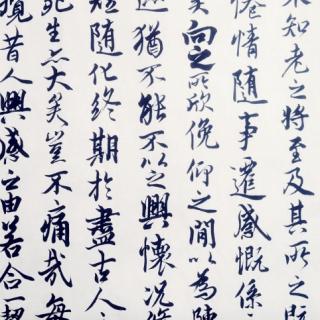 知老之將至及其所之既
倦情隨事遷感慨係
矣向之所欣俛仰之閒以為陳
迹猶不能不以之興懷況脩
短隨化終期於盡古人
死生亦大矣豈不痛哉每
攬昔人興感之由若合一契